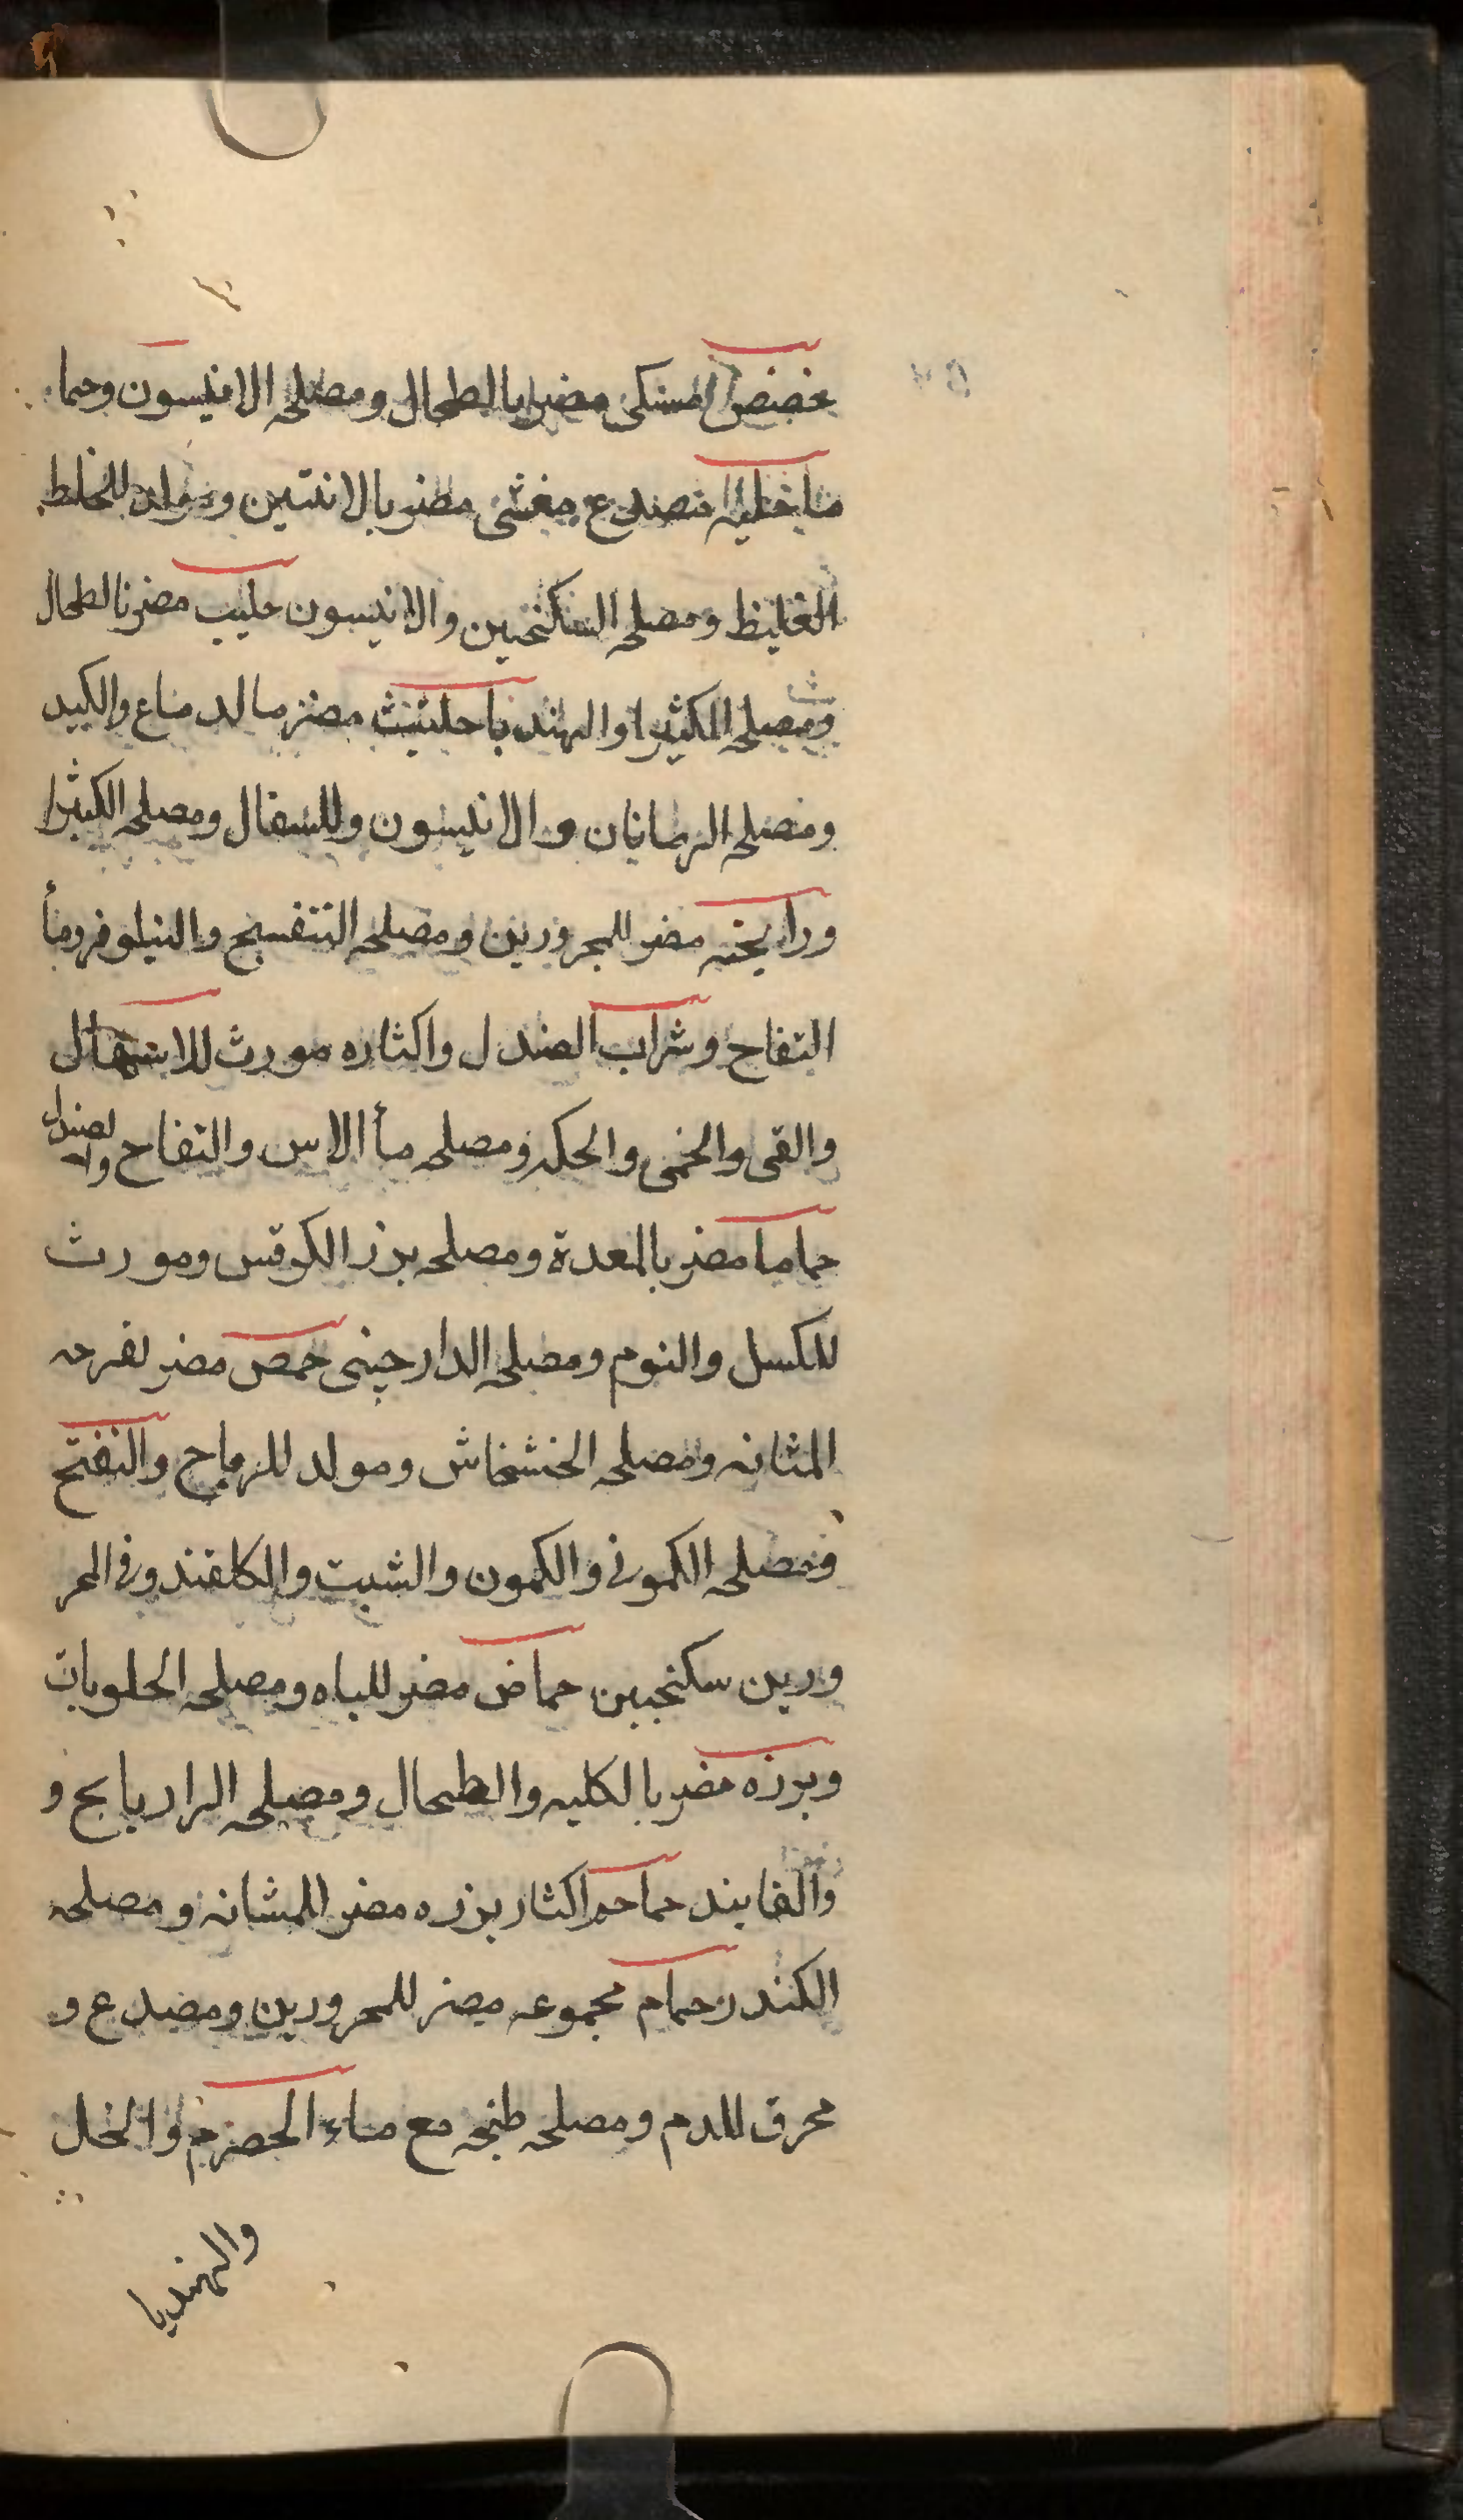 حضض المسكى مضر بالطحال ومصلحه الانيسون وحما
ما خليه متصدع مغثى مضر بالانثيين ومولد للخلط
الغليظ ومصلحه السكنجبين والانيسون حليب مضر بالطحال
ومصلحه الكثيرا والهندبا حلتيث مضر بالدماغ والكبد
ومصلحه الرمانان والانيسون وللسفال ومصلحه الكثيرا
ورايحته مضر للمحرورين ومصلحه البنفسج والنيلوفر ومأ
التفاح وشراب الصندل واكثاره مورث للاسهال
والقى والحمى والحكه ومصلحه مأ الاس والتفاح والصندل
حماما مضر بالمعدة ومصلحه بزر الكرفس ومورث
للكسل والنوم ومصلحه الدارجينى حمص مضر لقرحه
المثانه ومصلحه الخشخاش ومولد للرياح والنفخ
ومصلحه الكمونى والكمون والشبت والكلقند وفى المحر
ورين سكنجبين حماض مضر للباه ومصلحه الحلويات
وبزره مضر بالكليه والطحال ومصلحه الرازيانج و
والفانيد حماحم اكثار بزره مضر للمثانه ومصلحه
الكندر حمام مجموعه مضر للمحرورين ومصدع و
محرق للدم ومصلحه طبخه مع ماء الحصرم والخل
والهندبا